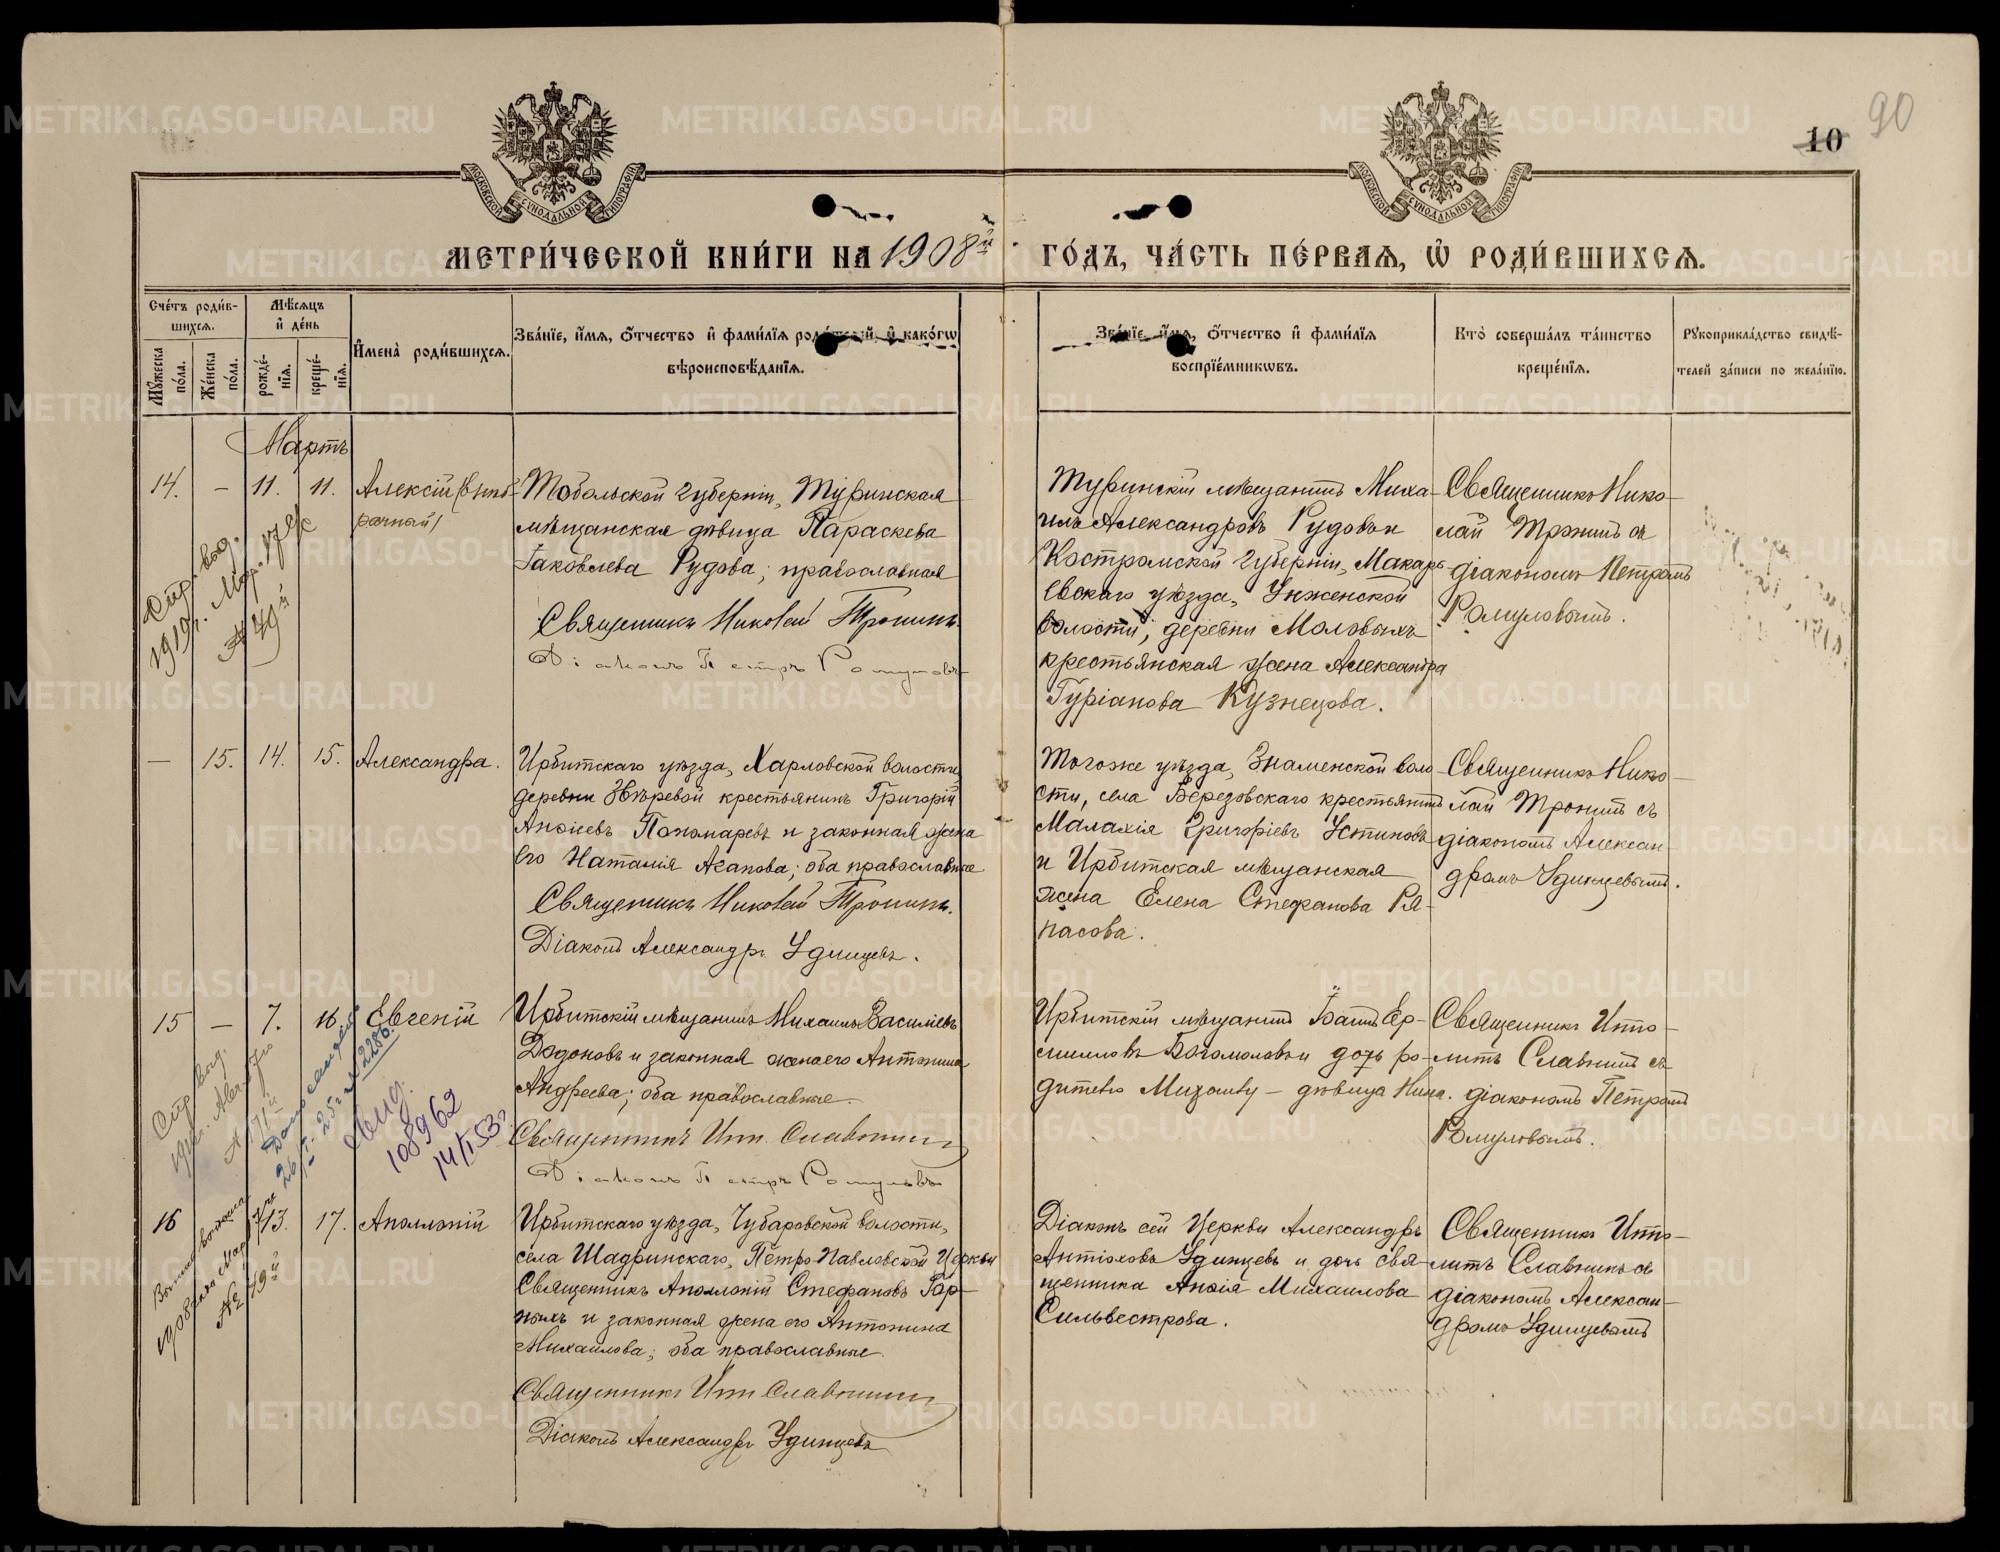 90
10
МОСКОВСКОЙ СѴНОДАЛЬНОЙ ТИПОГРАФІИ
МОСКОВСКОЙ СѴНОДАЛЬНОЙ ТИПОГРАФІИ
МЕТРИ́ЧЕСКОЙ КНИ́ГИ НА 1908й ГО́ДЪ, ЧА́СТЬ ПЕ́РВАЯ, Ѡ҆ РОДИ́ВШИХСЯ.
Сче́тъ роди́в-
шихся.
Мѣ́сяцъ
и҆ де́нь
Мꙋ́жеска
по́ла.
Же́нска
по́ла.
рожде́-
нїя.
креще́-
нїя.
И҆мена̀ роди́вшихся.
Зва́нїе, и҆́мя, ѻ҆́тчество и҆ фами́лїя роди́телей, и҆ како́гѡ
вѣроисповѣ́данїя.
Зва́нїе, и҆́мя, ѻ҆́тчество и҆ фами́лїя
воспрїе́мникѡвъ.
Кто̀ соверша́лъ та́инство
креще́нїя.
Рꙋкоприкла́дство свидѣ́-
телей за́писи по жела́нїю.
Мартъ
14. — 11. 11. Алексій (внѣб-
рачный)
Тобольской губерніи, Туринская
мѣщанская дѣвица Параскева
Іаковлева Рудова; православная
Священникъ Николай Тронинъ.
Діаконъ Петръ Ромуловъ
Туринскій мѣщанинъ Миха-
илъ Александровъ Рудовъ и
Костромской губерніи, Макарь-
евскаго уѣзда, Унженской
волости, деревни Моловыхъ
крестьянская жена Александра
Гуріанова Кузнецова.
Священникъ Нико-
лай Тронинъ съ
діакономъ Петромъ
Ромуловымъ.
Стр. выд.
1919 г. Мар. 17 дн.
№ 49й
— 15. 14. 15. Александра.
Ирбитскаго уѣзда, Харловской волости,
деревни Звѣревой крестьянинъ Григорій
Аніевъ Пономаревъ и законная жена
его Наталія Агапова; оба православные
Священникъ Николай Тронинъ.
Діаконъ Александръ Удинцевъ.
Тогоже уѣзда, Знаменской воло-
сти, села Березовскаго крестьянинъ
Малахія Григоріевъ Устиновъ
и Ирбитская мѣщанская
жена Елена Стефанова Ря-
пасова.
Священникъ Нико-
лай Тронинъ съ
діакономъ Алексан-
дромъ Удинцевымъ.
15 — 7. 16. Евгеній
Ирбитскій мѣщанинъ Михаилъ Василіевъ
Додоновъ и законная жена его Антонина
Андреева; оба православные.
Священникъ Ипп. Славнинъ
Діаконъ Петръ Ромуловъ
Ирбитскій мѣщанинъ Іоаннъ Ер-
миловъ Богомоловъ и дочь ро-
дителю Михаилу — дѣвица Нина.
Священникъ Иппо-
литъ Славнинъ съ
діакономъ Петромъ
Ромуловымъ.
Стр. выд.
№ 71й
2286.
свид.
108962
14/I 53 г.
16 13. 17. Аполлоній
Ирбитскаго уѣзда, Чубаровской волости,
села Шадринскаго, Петро-Павловской Церкви
Священникъ Аполлоній Стефановъ Гор-
ныхъ и законная жена его Антонина
Михаилова; оба православные.
Священникъ Ипп. Славнинъ
Діаконъ Александръ Удинцевъ
Діаконъ сей Церкви Александръ
Антіоховъ Удинцевъ и дочь свя-
щенника Анѳія Михаилова
Сильвестрова.
Священникъ Иппо-
литъ Славнинъ съ
діакономъ Алексан-
дромъ Удинцевымъ
1908 года Мар.
№ 19й
METRIKI.GASO-URAL.RU